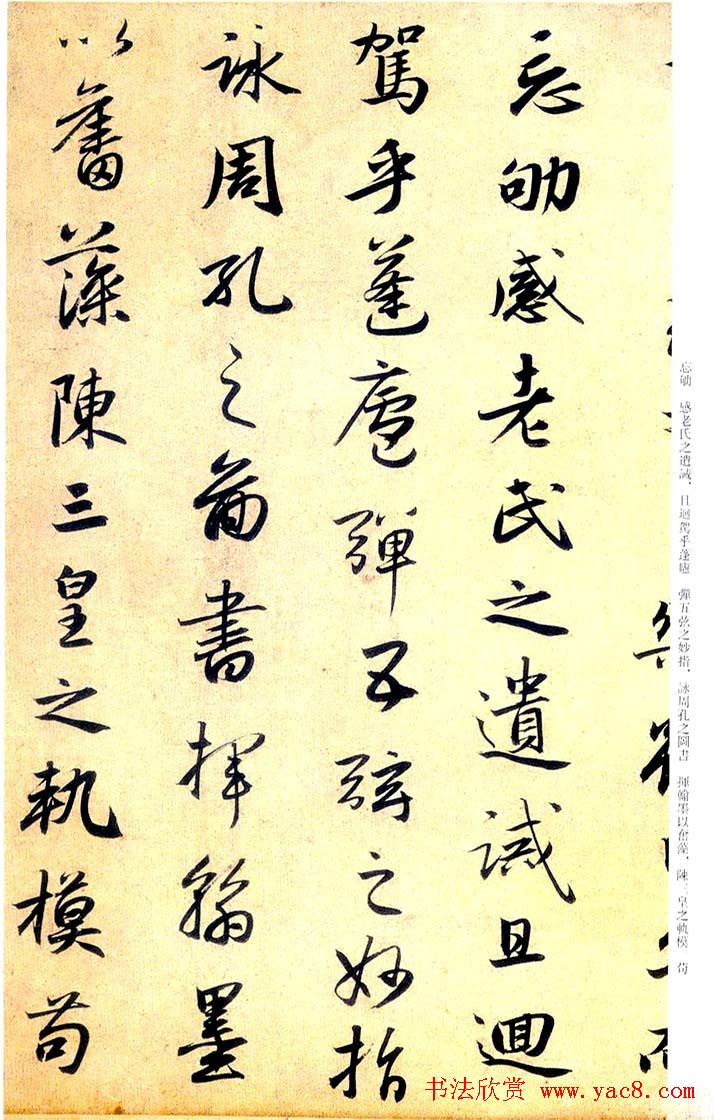 忘劬感老氏之遺誡且迴
駕乎蓬廬彈五弦之妙指
詠周孔之啚書揮翰墨
以奮藻陳三皇之軌模苟
忘劬 感老氏之遺誡、且迴駕乎蓬廬 彈五弦之妙指、詠周孔之圖書 揮翰墨以奮藻、陳三皇之軌模 苟
书法欣赏 www.yac8.com